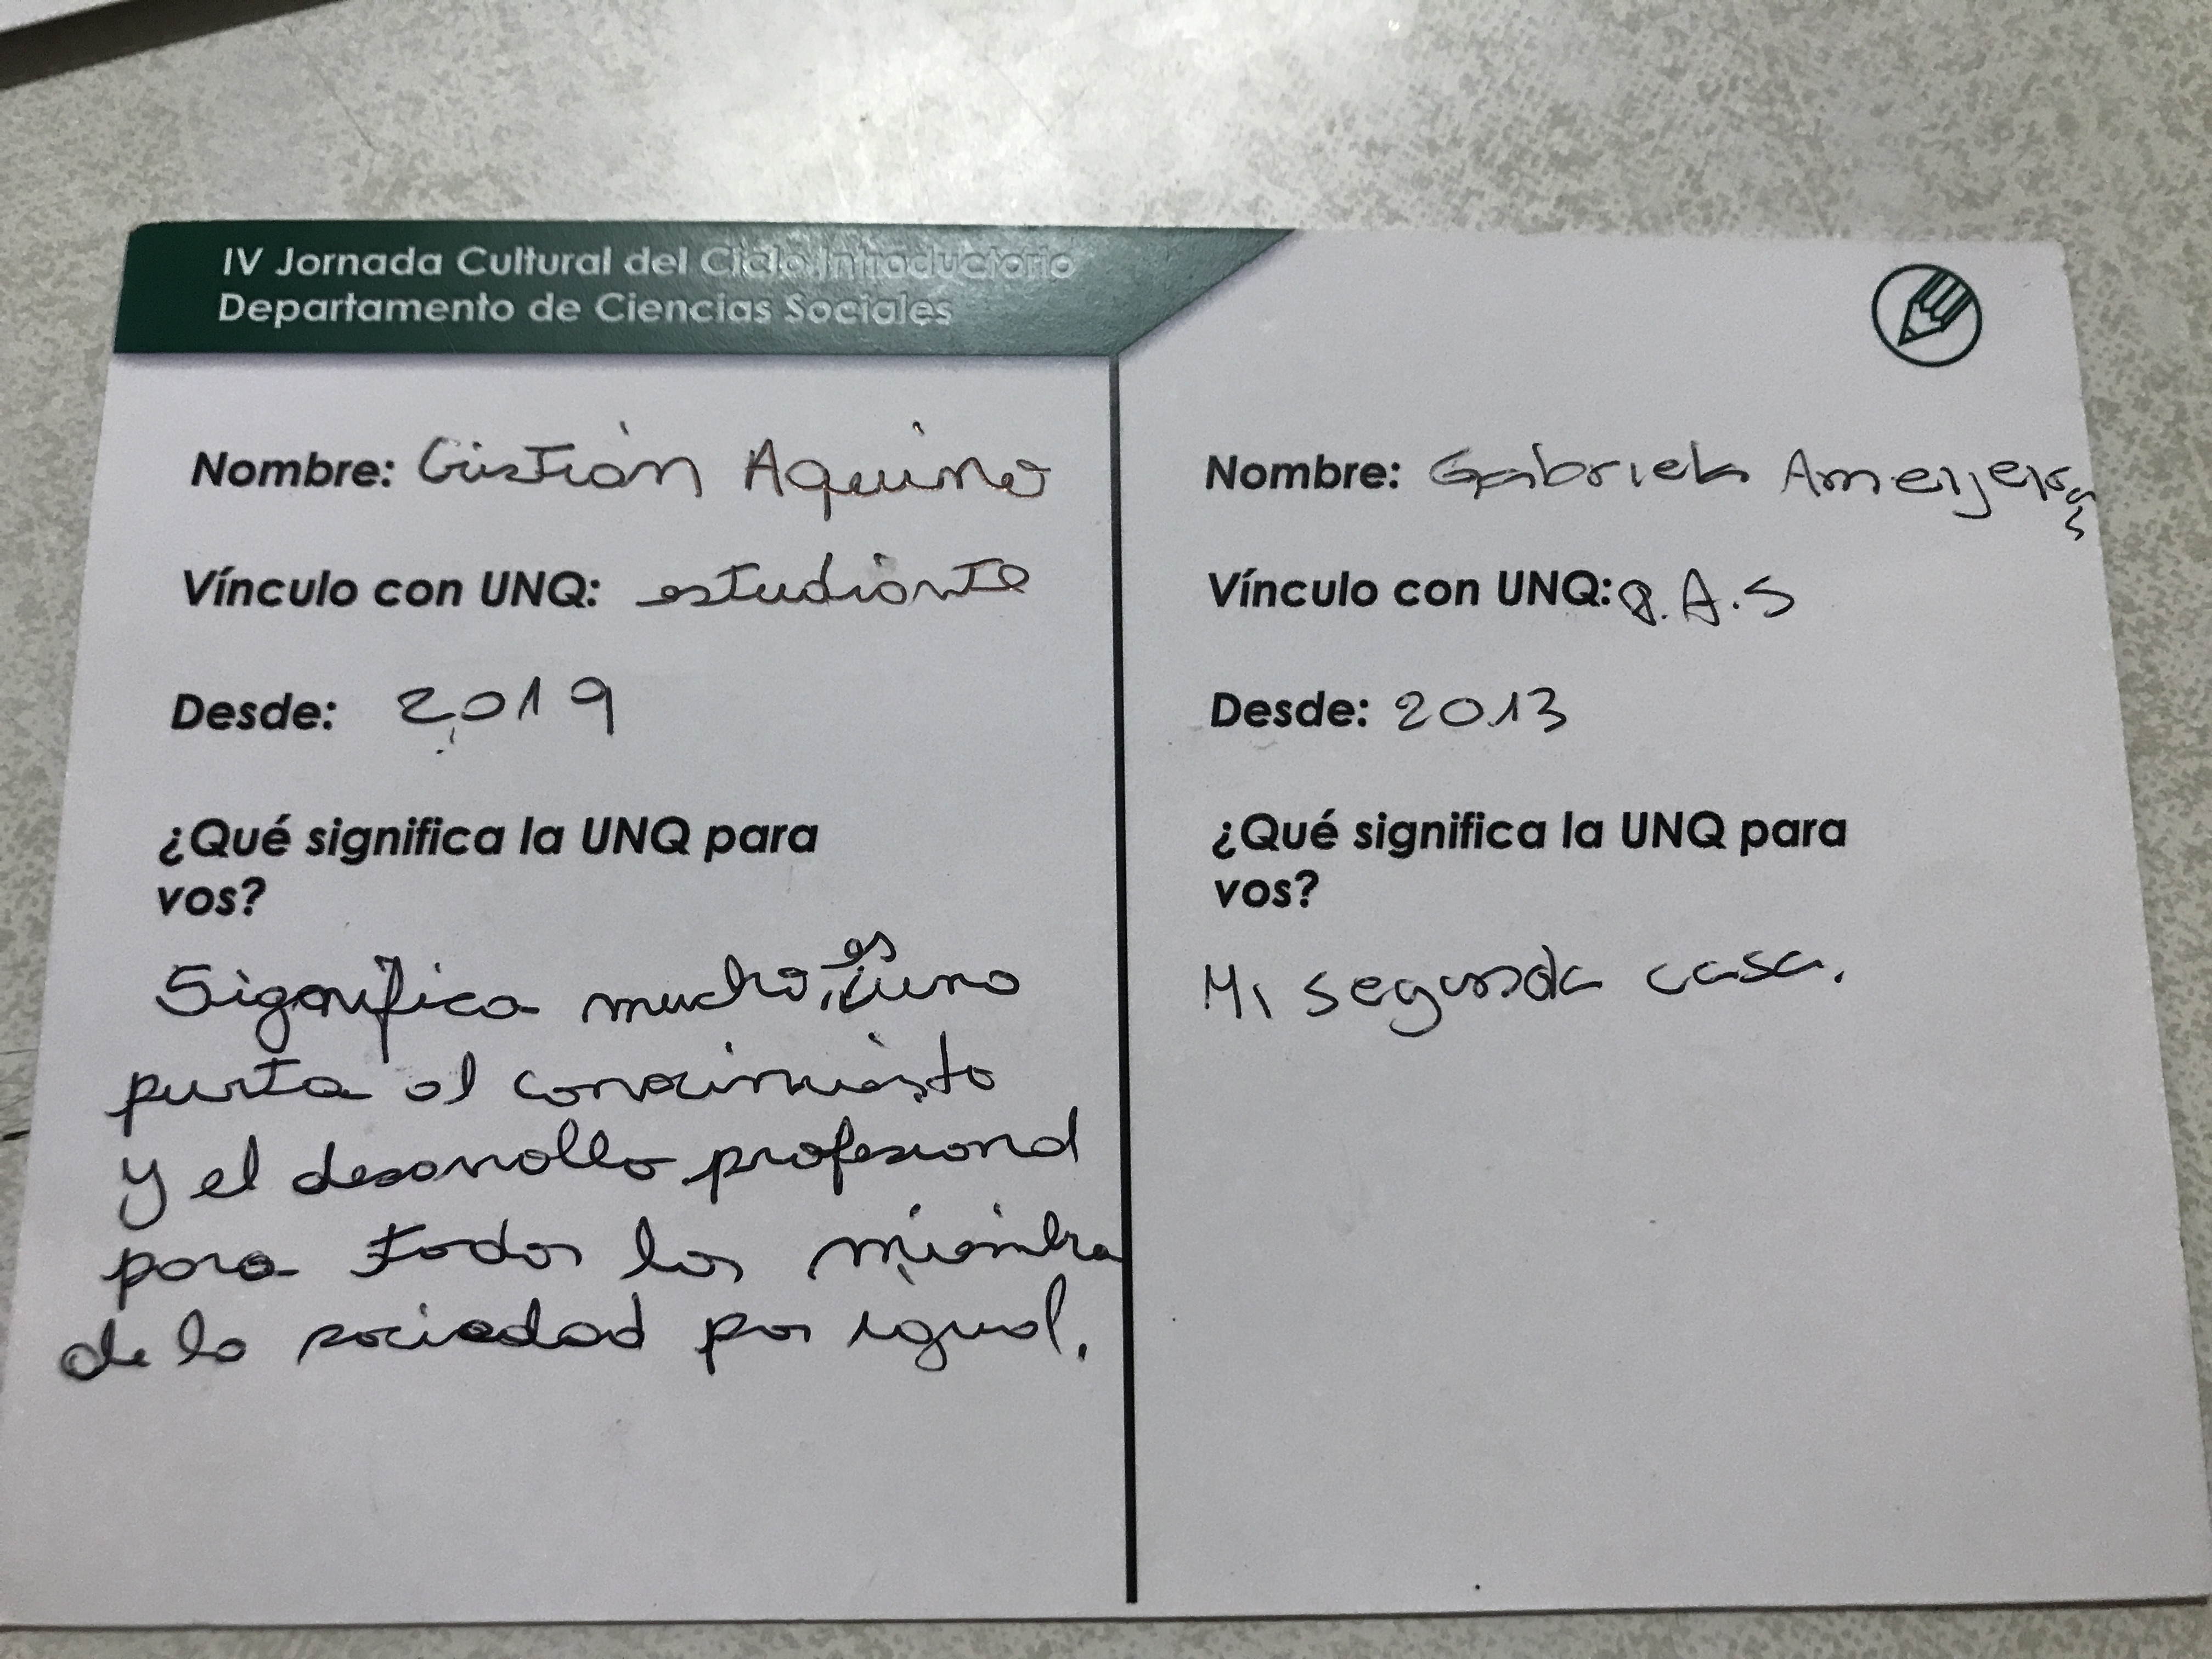 IV Jornada Cultural del Ciclo Introductorio
Departamento de Ciencias Sociales
Nombre: Cristian Aquino
Vínculo con UNQ: estudiante
Desde: 2019
¿Qué significa la UNQ para
vos?
Significa mucho, es una
puerta al conocimiento
y el desarrollo profesional
para todos los miembros
de la sociedad por igual.
Nombre: Gabriela
Vínculo con UNQ: P.A.S
Desde: 2013
¿Qué significa la UNQ para
vos?
Mi segunda casa.